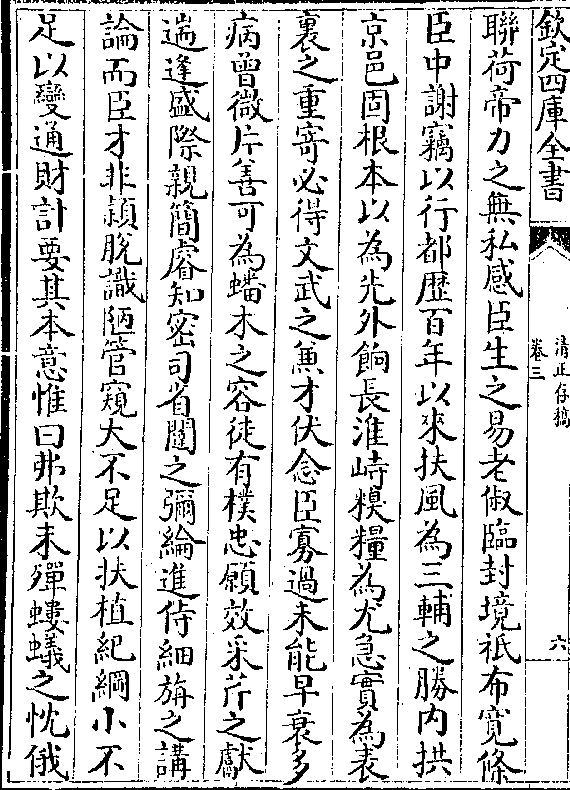 欽定四庫全書
清正存稿
卷三
六
聯荷帝力之無私感臣生之易老俶臨封境祗布寛條
臣中謝竊以行都歴百年以來扶風為三輔之勝内拱
京邑固根本以為先外餉長淮峙糗糧為尤急實為表
裏之重寄必得文武之兼才伏念臣寡過未能早衰多
病曽微片善可為蟠木之容徒有樸忠願效采芹之獻
遄逢盛際親簡睿知密司省闥之彌綸進侍細旃之講
論而臣才非頴脱識陋管窺大不足以扶植紀綱小不
足以變通財計要其本意惟曰弗欺未殫螻蟻之忱俄